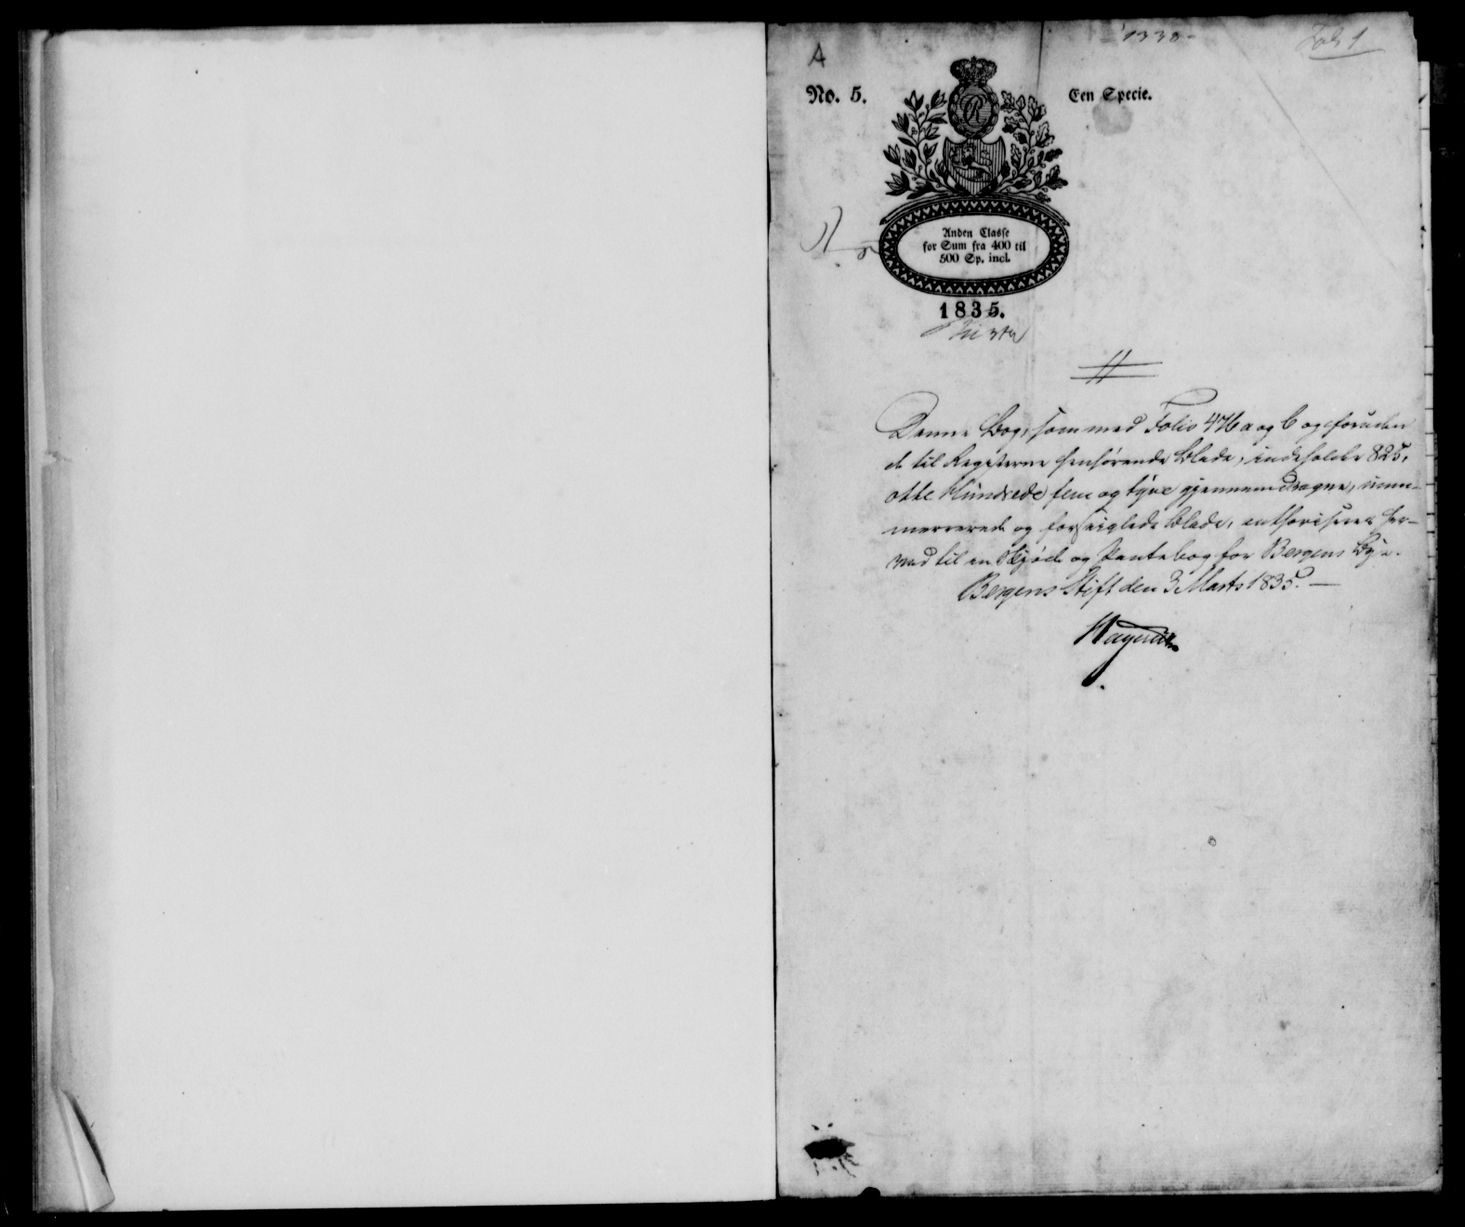 A
1338-
Fol. 1
No. 5.
Een Specie.
Anden Classe
for Sum fra 400 til
500 Sp. incl.
1835.
Denne Bog, som med Folio 476 a og b og foruden
de til Registerne henhørende Blade, indeholder 825,
otte Hundrede fem og tyve gjennemdragne, num-
mererede og forseiglede Blade, authoriseres her-
ved til en Skjøde og Pantebog for Bergens Bye.
Bergens Stift den 3 Marts 1835. —